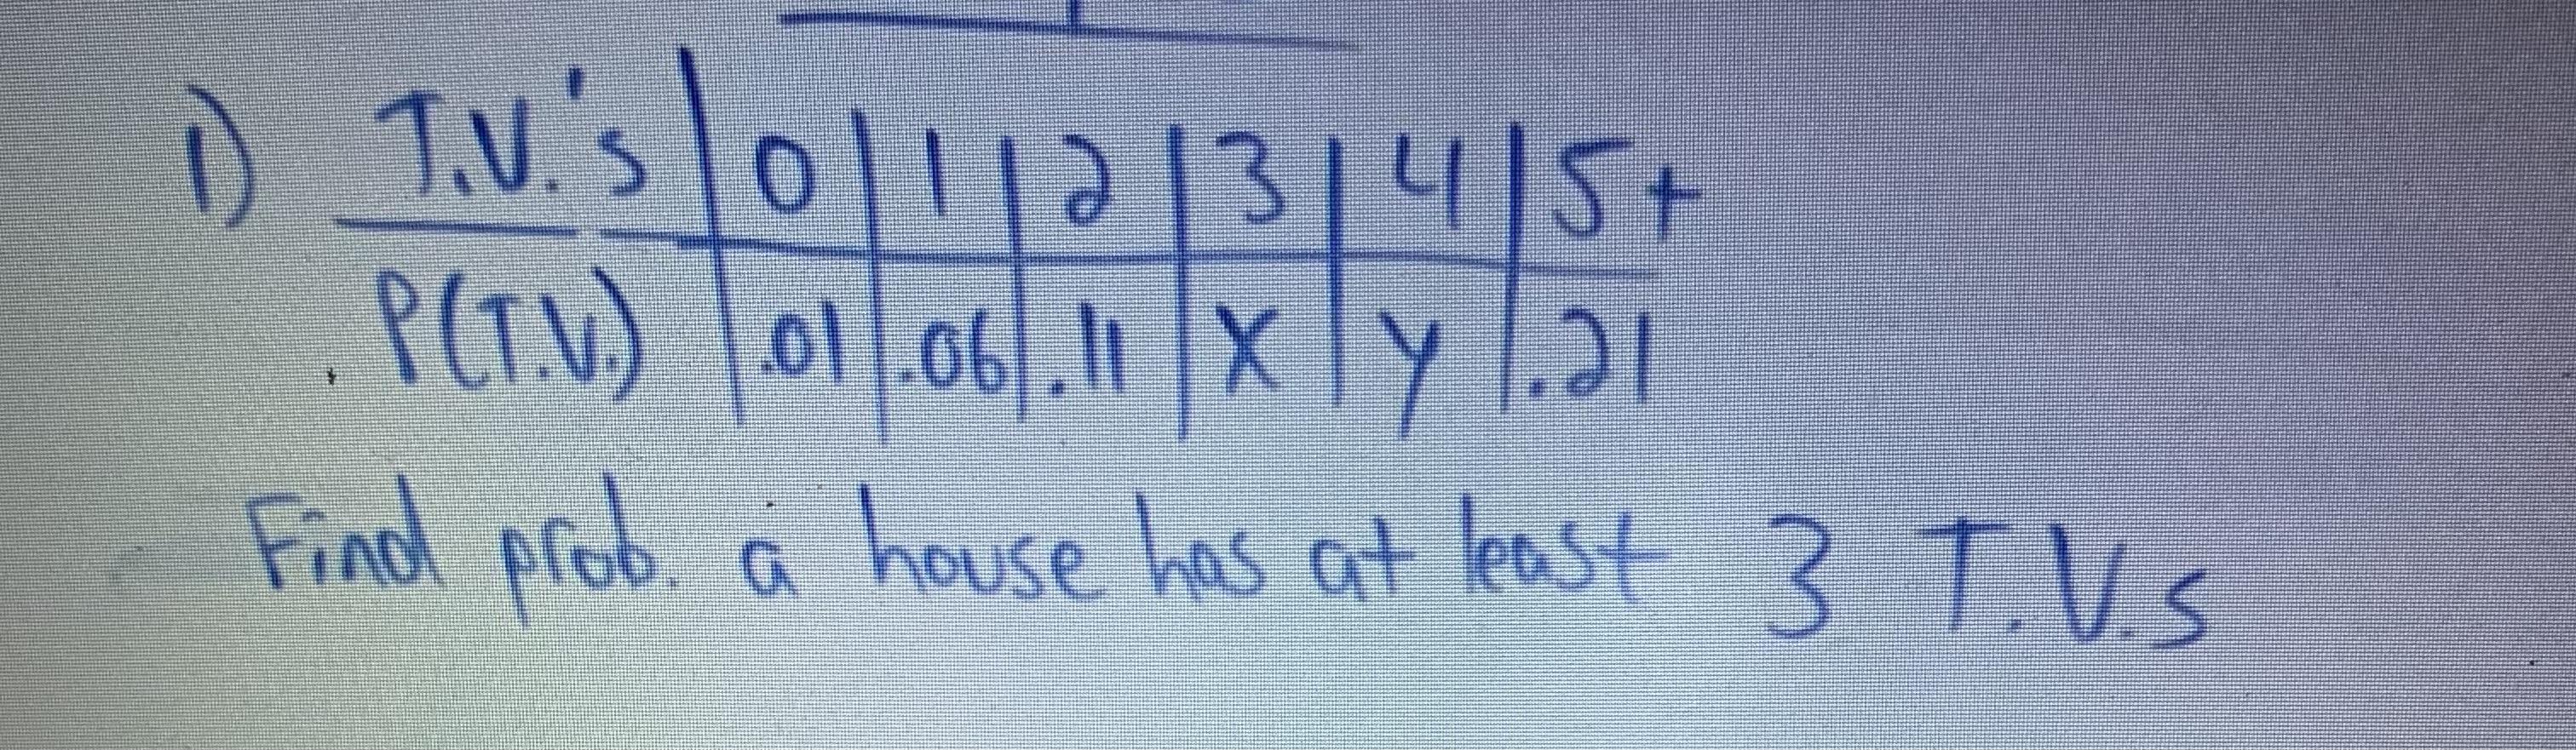 1) T.V.'s | 0 | 1 | 2 | 3 | 4 | 5+
P(T.V.) | .01 | .06 | .11 | X | Y | .21
Find prob. a house has at least 3 T.V.s